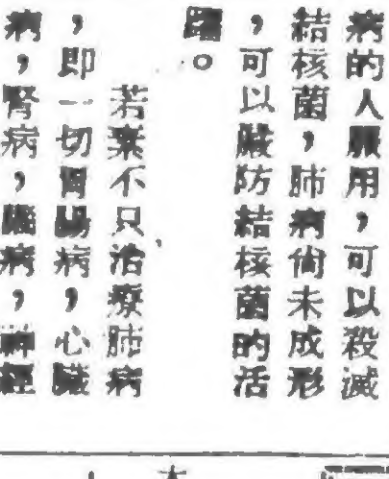 病的人服用，可以殺滅
結核菌，肺病尙未成形
，可以嚴防結核菌的活
躍。
若素不只治療肺病
，即一切胃腸病，心臟
病，腎病，腦病，神經